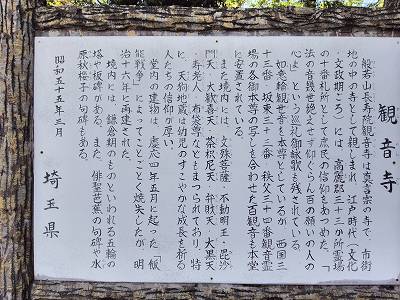 観音寺
般若山長寿院観音寺は真言宗の寺で、市街
地の中の寺として親しまれ、江戸時代(文化
・文政期ごろ)には、高麗郡三十三か所霊場
の十番札所として庶民の信仰をあつめた。「
法の音幾世絶えせず仰ぐらん百の願いの人の
心よ」という巡礼御詠歌も残されている。
如意輪観世音を本尊としているが、西国三
十三番、坂東三十三番、秩父三十四番観音霊
場の各御本尊の写しを合わせた百観音も本堂
に安置されている。
また境内には、文殊菩薩、不動明王、毘沙
門天、大歓喜天、荼枳尼天、弁財天、大黒天、
寿老人、布袋尊などもまつられており、特
に、天狗地蔵は幼児のすこやかな成長を祈る
人たちの信仰が厚い。
堂内の建物は、慶応四年五月に起った「飯
能戦争」によってことごとく焼失したが、明
治十六年に再建された。
境内には、鎌倉期のものといわれる五輪の
塔や板碑がある。また、俳聖芭蕉の句碑や水
原秋桜子の句碑もある。
昭和五十五年三月
埼玉県